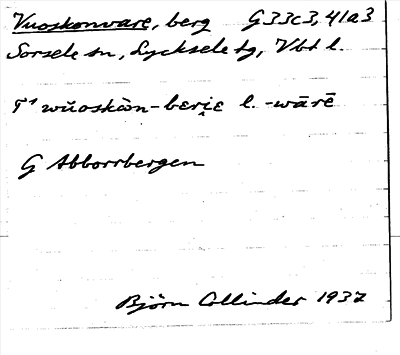 Vuoskonvare, berg G33c3,41a3
Sorsele sn, Lycksele tg, Vbt l.
T¹ wŭoskàn-bɛri̯ɛ l. -wārē
G Abborrbergen
Björn Collinder 1937